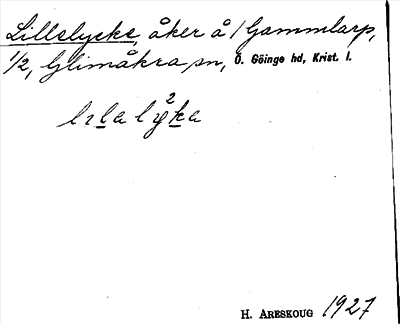 Lillelycke, åker å 1 Gammlarp,
1/2, Glimåkra sn, Ö. Göinge hd, Krist. l.
2
H. ARESKOUG 1927